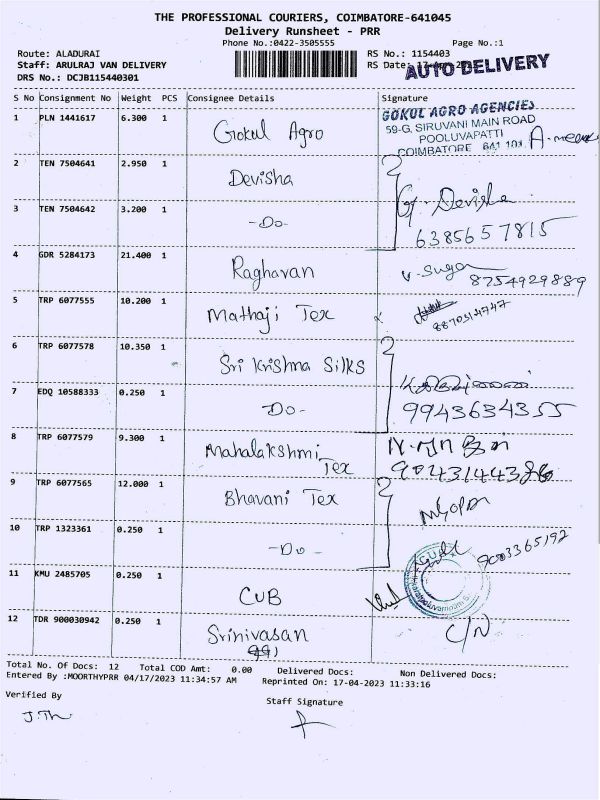 THE PROFESSIONAL COURIERS, COIMBATORE-641045
Delivery Runsheet - PRR
Phone No.:0422-3505555 Page No.:1
Route: ALADURAI RS No.: 1154403
Staff: ARULRAJ VAN DELIVERY RS Date:
AUTO DELIVERY
DRS No.: DCJB115440301
S No Consignment No Weight PCS Consignee Details Signature
1 PLN 1441617 6.300 1 Gokul Agro
GOKUL AGRO AGENCIES
59-G, SIRUVANI MAIN ROAD
POOLUVAPATTI
COIMBATORE 641 101
2 TEN 7504641 2.950 1 Devisha
G. Devisha
3 TEN 7504642 3.200 1 -Do-
6385657815
4 GDR 5284173 21.400 1 Raghavan
V. Suga 8754929889
5 TRP 6077555 10.200 1 Mathaji Tex
6 TRP 6077578 10.350 1 Sri Krishna Silks
7 EDQ 10588333 0.250 1 -Do-
9943634355
8 TRP 6077579 9.300 1 Mahalakshmi
Tex
9 TRP 6077565 12.000 1 Bhavani Tex
10 TRP 1323361 0.250 1 -Do-
9003365192
11 KMU 2485705 0.250 1 CUB
12 TDR 900030942 0.250 1 Srinivasan C/N
Total No. Of Docs: 12 Total COD Amt: 0.00 Delivered Docs: Non Delivered Docs:
Entered By :MOORTHYPRR 04/17/2023 11:34:57 AM Reprinted On: 17-04-2023 11:33:16
Verified By Staff Signature